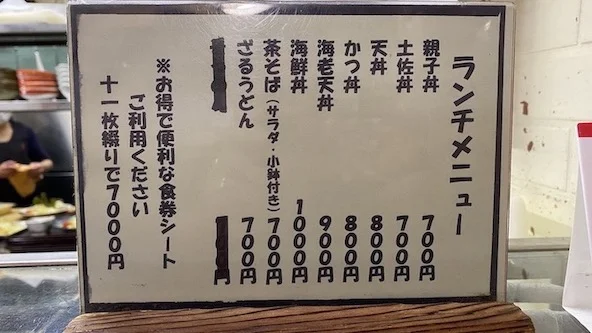 ランチメニュー
親子丼 700円
土佐丼 700円
天丼 800円
かつ丼 800円
海老天丼 900円
海鮮丼 1000円
茶そば(サラダ・小鉢付き) 700円
ざるうどん 700円
円
※お得で便利な食券シート
ご利用ください
十一枚綴りで7000円